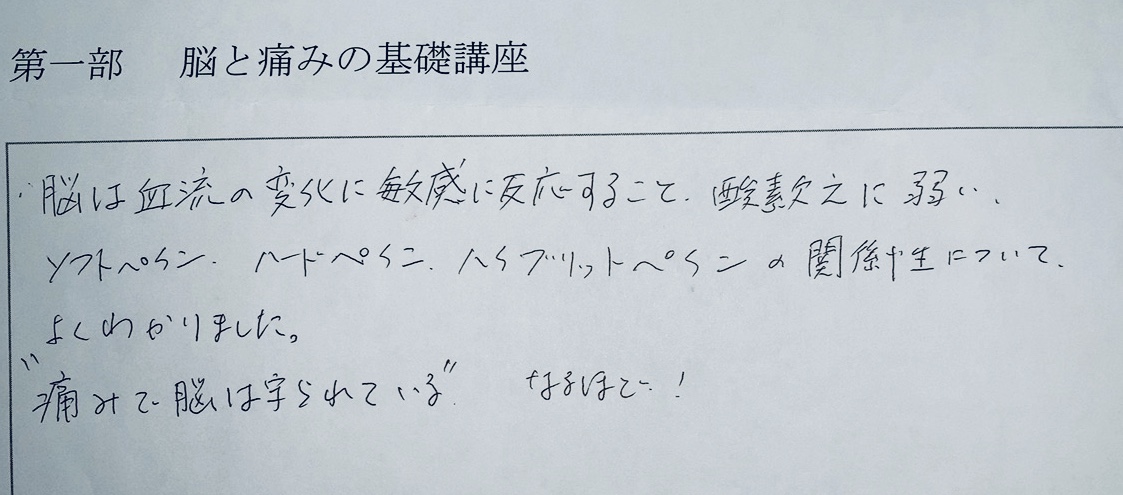 第一部　脳と痛みの基礎講座
・脳は血流の変化に敏感に反応すること、酸素欠乏に弱い、
ソフトペイン、ハードペイン、ハイブリットペインの関係性について、
よくわかりました。
"痛みで脳は守られている"　なるほど！